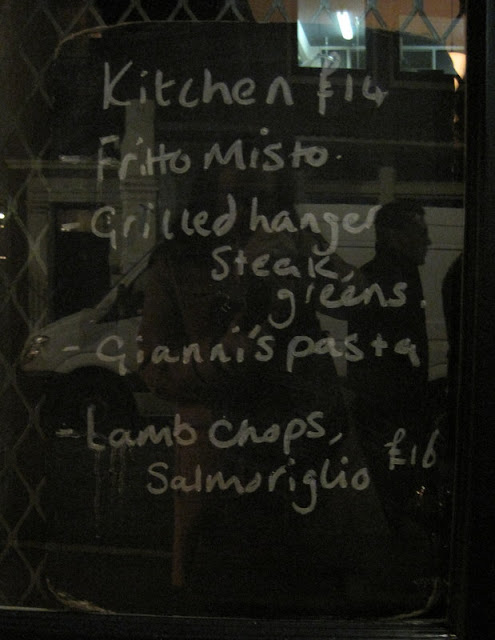 Kitchen £14
- Fritto Misto.
- Grilled hanger
Steak,
greens.
- Gianni's pasta
- Lamb chops,
Salmoriglio £16